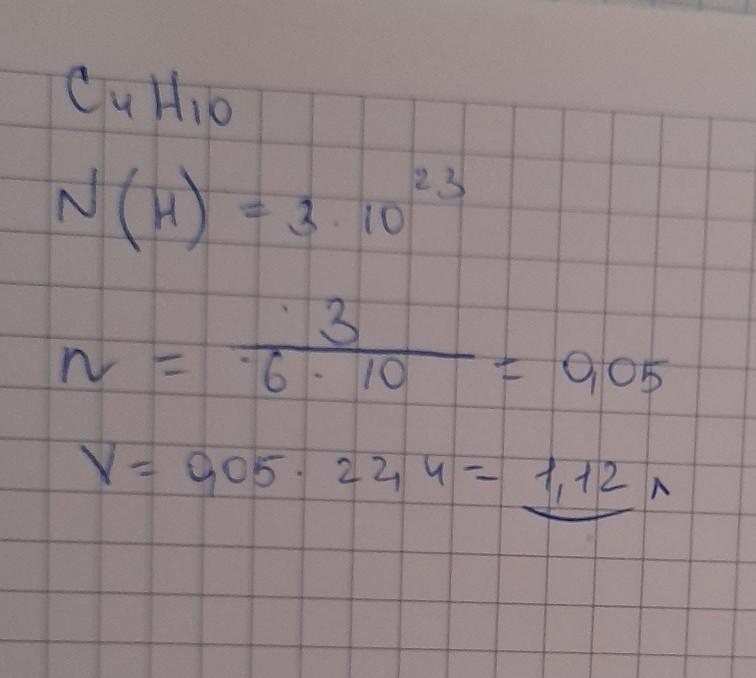 C4H10
N(H) = 3 · 10^23
n = 3 / 6 · 10 = 0,05
V = 0,05 · 22,4 = 1,12 л